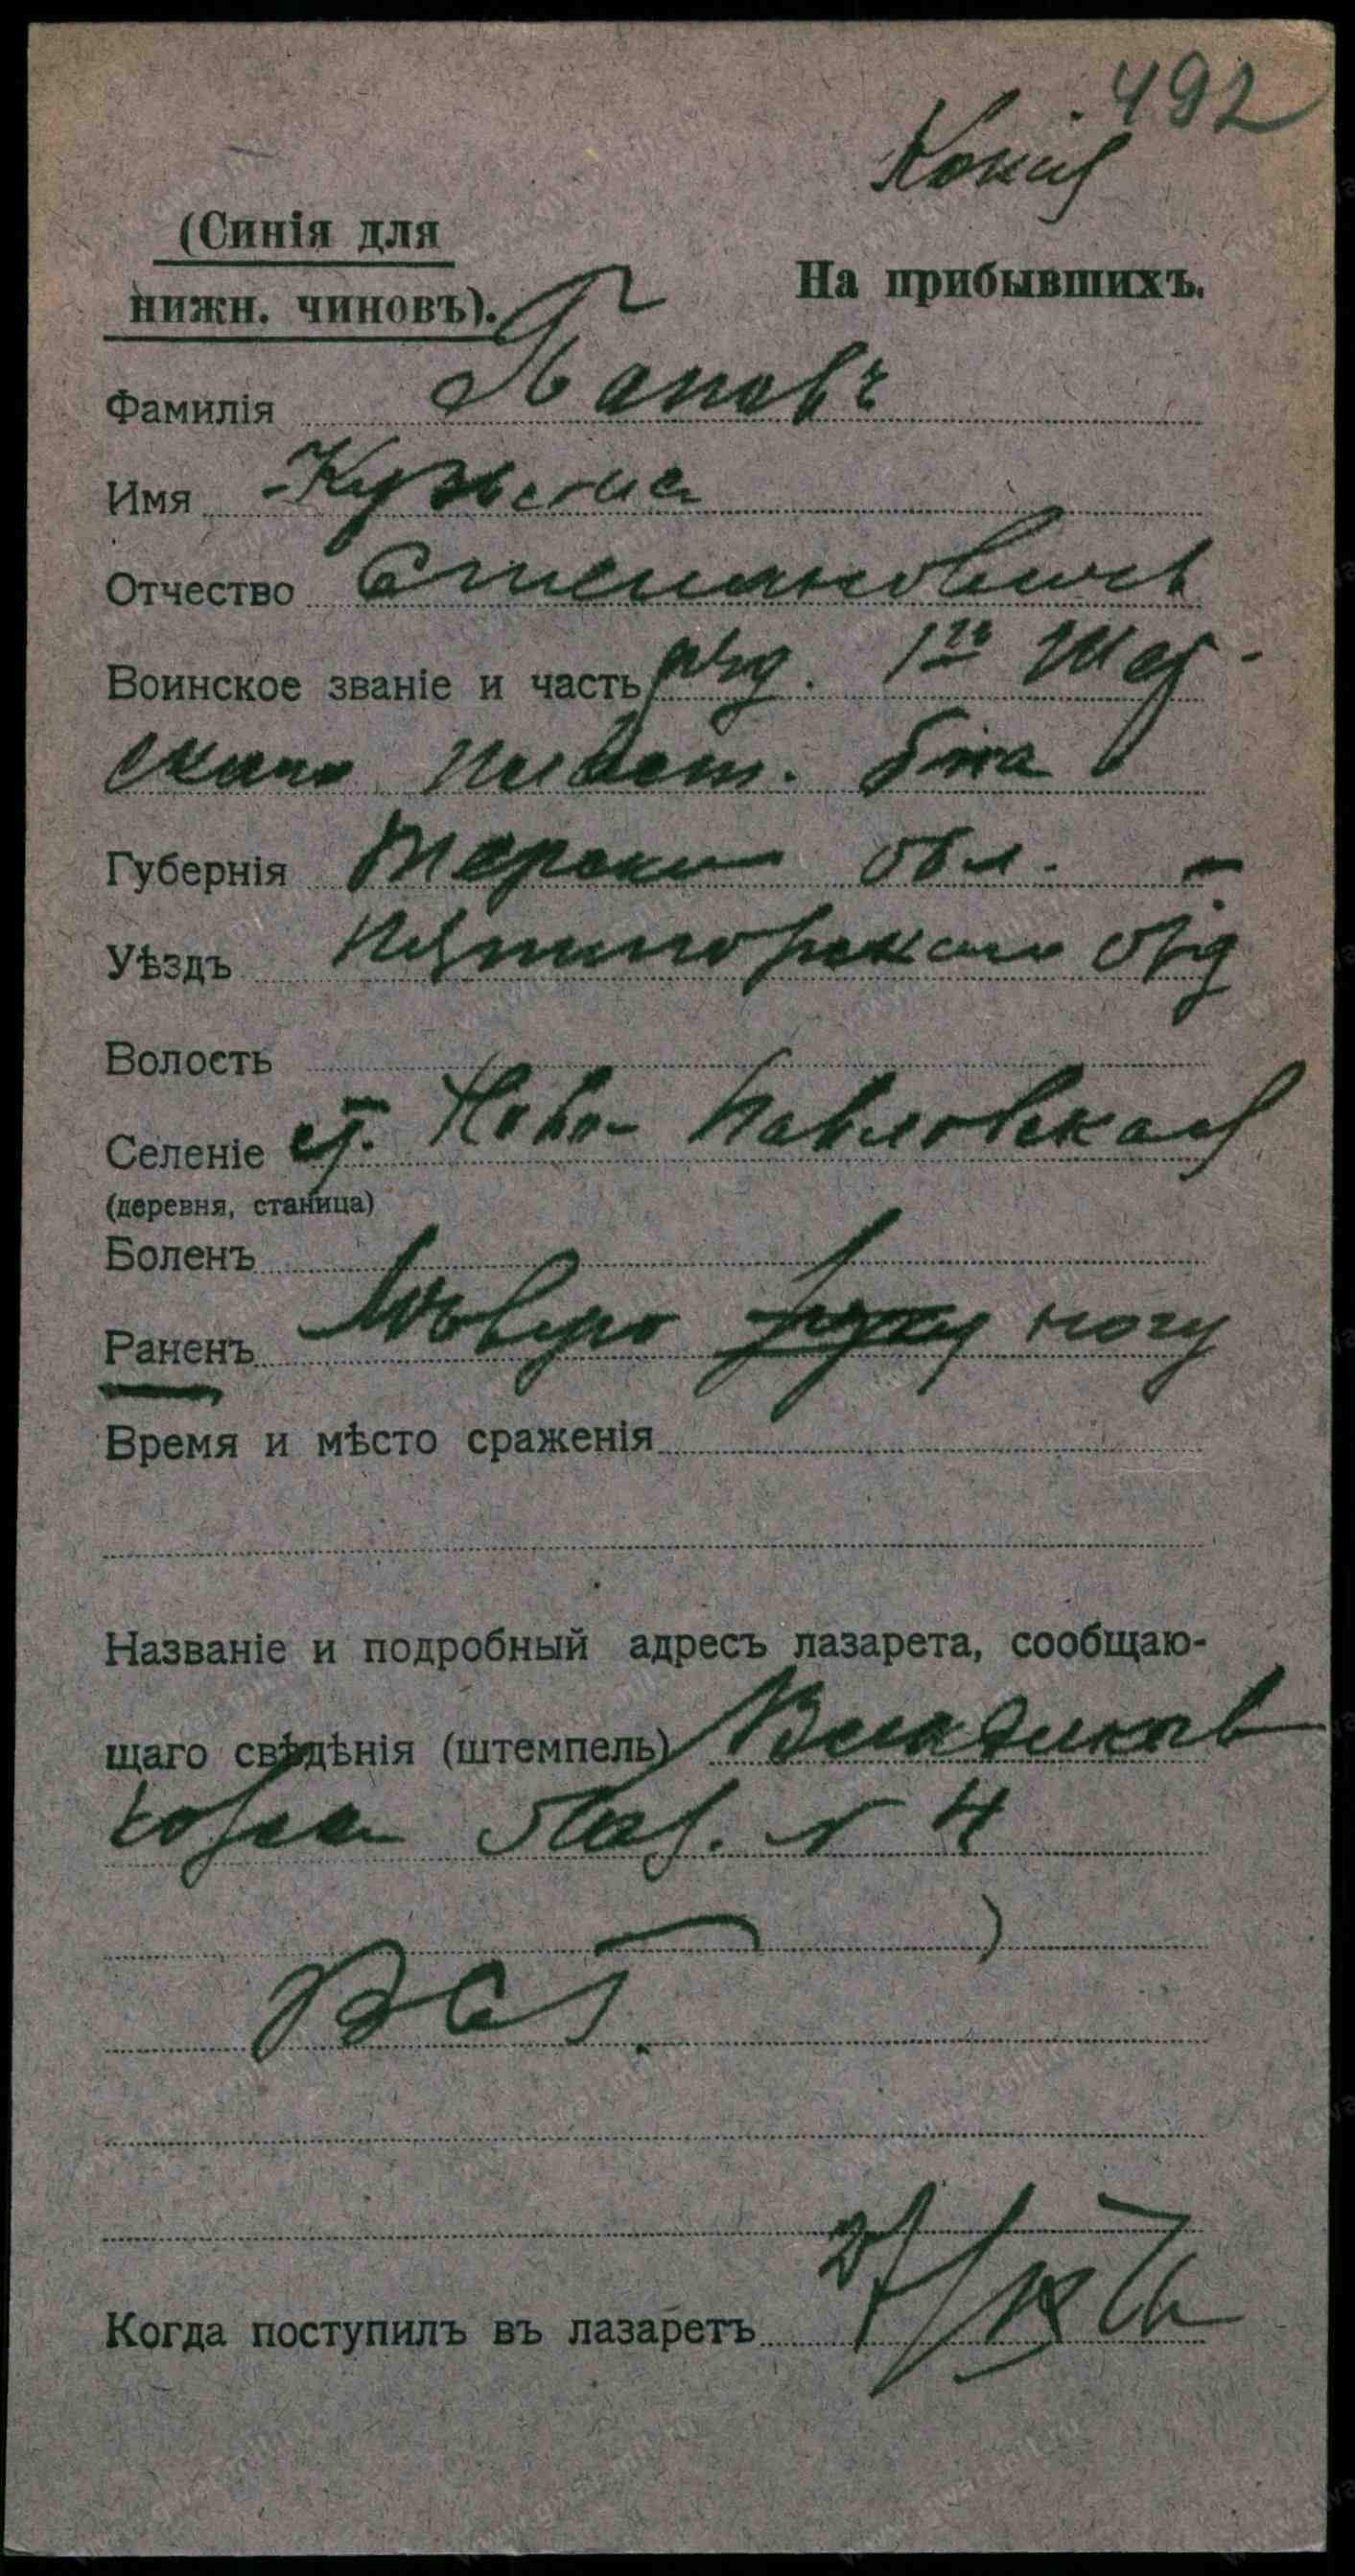 492
Копія
(Синія для
нижн. чиновъ).
На прибывшихъ.
Фамилія Паповъ
Имя Кузьма
Отчество Степановичъ
Воинское званіе и часть ряд. 1го
скаго Пласт. б-на
Губернія Терской обл.
Уѣздъ Пятигорскаго отд
Волость
Селеніе ст. Ново-Павловская
(деревня, станица)
Боленъ
Раненъ въ лѣвую руку ногу
Время и мѣсто сраженія
Названіе и подробный адресъ лазарета, сообщаю-
щаго свѣдѣнія (штемпель) Владикав
Лаз. № 4
ВСГ.
Когда поступилъ въ лазаретъ